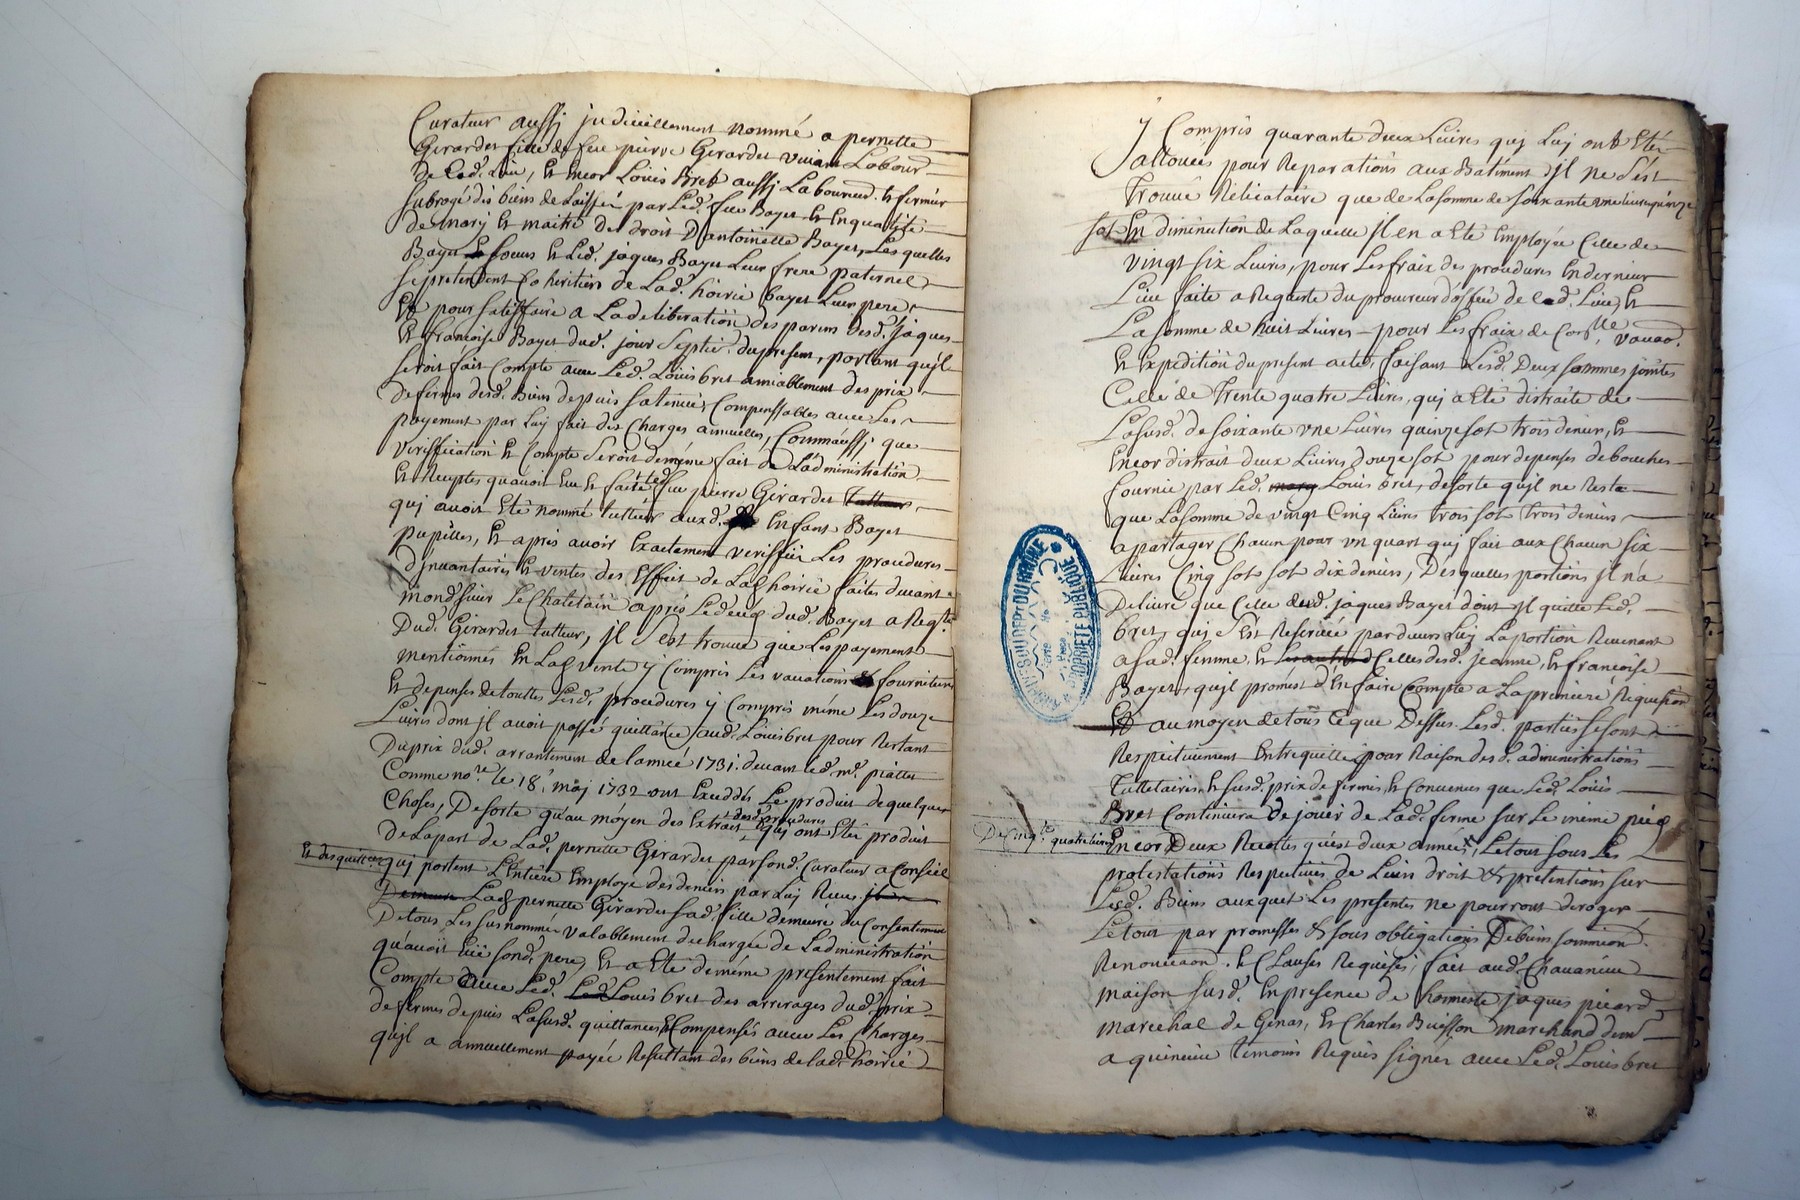 Curateur aussy judiciellement nommé a pernette
Girardet fille de feu pierre Girardet vivant Labour.
de Lad. Lieu, et encor Louis Bret aussj Laboureur et fermier
subrogé des biens delaissés par Led. feu Bayet et en qualité
de mary et maitre de droit D'antoinette Bayet, Les quelles
Bayet soeurs et Led. jaques Bayet Leur frere paternel
se pretendent Co heritiers de Lad. hoirie Bayet Leur pere
Et pour satisffaire a La deliberation des parens desd. jaques
et francoise Bayet dud. jour Septie. du present, portant qujl
seroit fait Compte avec Led. Louis bret amiablement des prix
de fermes desd. Biens depuis sa tenue, Compensables avec Les
payement par Luy fait des Charges annuelles, Comm'aussj que
veriffication et Compte seroit demême fait de L'administration
et Receptes qu'avoit eue et faite led. feu pierre Girardet tutteur
quj avoit eté nommé tutteur auxd. enfans Bayet
pupilles, et aprés avoir exactement veriffié Les procedures
D'jnvantaires et ventes des effets de Lad. hoirie faites devant
mondsieur Le Chatelain aprés Le deceds dud. Bayet a Reqte.
Dud. Girardet tutteur, jl s'est trouvé que Les payement
mentionnés en Lad. vente y Compris Les vacations et fourniture
et depenses de touttes Lesd. procedures y Compris méme Les douze
Livres dont jl avoit passé quittance aud. Louis bret pour Restant
Du prix dud. arrantement de l'année 1731. devant led. me. piattet
Comme nore. le 18e. may 1732 ont excedés Le produit de quelque
Choses, De sorte qu'au moyen des extraits desd. procedures quj ont eté produit
de La part de Lad. pernette Girardet par sond. Curateur a Conseil
et des quittances quj portent L'entiére employe des deniers par Luj Receu
Demeure Lad. pernette Girardet sad. fille demeure du Consentement
De tous Les susnommés valablement dechargée de L'administration
qu'avoit eüe sond. pere, et a eté demême presentement fait
Compte avec Led. Led. Louis bret des arrerages dud. prix
de fermes depuis La susd. quittance et Compensés avec Les Charges
qujl a annuellement payée Resultant des biens de lad. hoirie
y Compris quarante deux Livres quj Luj ont Eté
allouées pour Reparations aux Batiment jl ne s'est
trouvé Relicataire que de La somme de soixante une livre quinze
sols En diminution de Laquelle jl en a eté employée Celle de
vingt six Livres, pour Les fraix des procedures en dernier
Lieu faite a Requete du procureur d'office de ced. Lieu, et
La somme de huit Livres pour Les fraix de Con.lle, vacaon.
et expedition du present acte, faisant Lesd. Deux sommes jointes
Celle de trente quatre Livres, quj a eté distraite de
La susd. de soixante une Livres quinze sols trois deniers, et
encor distrait deux Livres douze sols pour depenses de bouches
fournie par Led. mary Louis Bret, de sorte qujl ne Reste
que La somme de vingt Cinq Livres trois sols trois deniers
a partager Chacun pour un quart quj fait aux Chacun six
Livres Cinq sols sols dix deniers, Desquelles portions jl n'a
Delivré que Celle dud. jaques Bayet dont jl quitte Led.
bret, quj s'est Reservée pardevers Luj La portion Revenant
a sad. femme, et Les autres Celles desd. jeanne, et francoise
Bayet, qujl promest d'en faire Compte a La premiere Requisition
Et au moyen de tout Ce que Dessus, Lesd. parties se sont
Respectivement entrequittés pour Raison desd. administrations
Tuttelaires, et susd. prix de fermes, et Convenus que Led. Louis
Bret Continuera de jouir de Lad. ferme sur Le méme pied
De cinqte. quatre livres Encor Deux Recoltes qu'est deux années, Le tout sous Les
protestations Respectives de Leurs droit et pretentions sur
Lesd. Biens auxquels Les presentes ne pourront deroger
Le tout par promesses et sous obligations De biens soumiõn.
Renonciaon. et Clauses Requises, fait aud. Chavanieu
maison susd. en presence de honneste jaques picard
marechal de Genas, et Charles Buisson marchand demt.
a quirieu temoins Requis signer avec Led. Louis bret
PROPRIETE PUBLIQUE